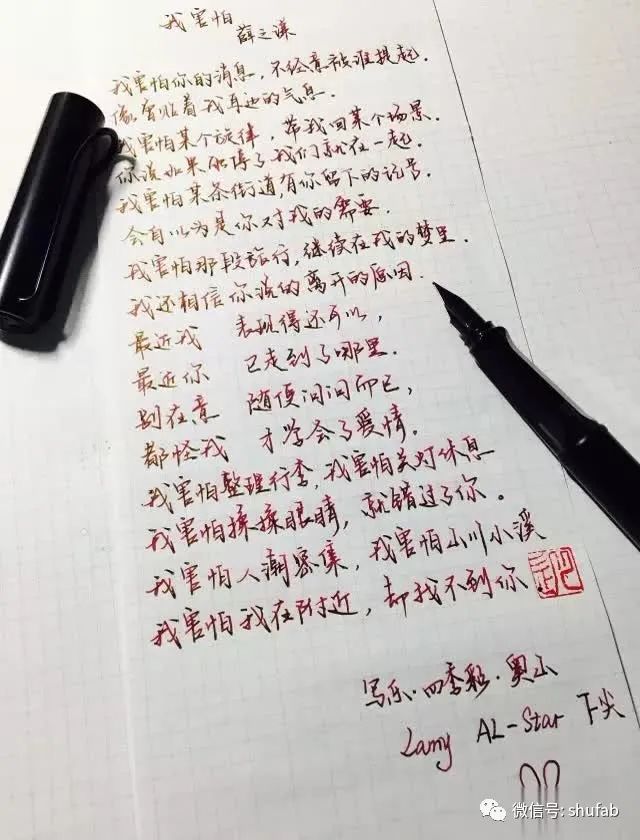 我害怕
薛之谦
我害怕你的消息，不经意被谁提起.
像虚贴着我耳边的气息.
我害怕某个旋律，带我回某个场景.
你说如果你停了我们就在一起.
我害怕某条街道有你留下的记号.
会自以为是你对我的需要.
我害怕那段旅行，继续在我的梦里.
我还相信你说的离开的原因.
最近我 表现得还可以，
最近你 已走到了哪里.
别在意 随便问问而已，
都怪我 才学会了爱情.
我害怕整理行李，我害怕关灯休息
我害怕揉揉眼睛，就错过了你。
我害怕人潮密集，我害怕山川小溪
我害怕我在附近，却找不到你
写乐·四季彩·奥山
Lamy AL-Star F尖
微信号: shufab